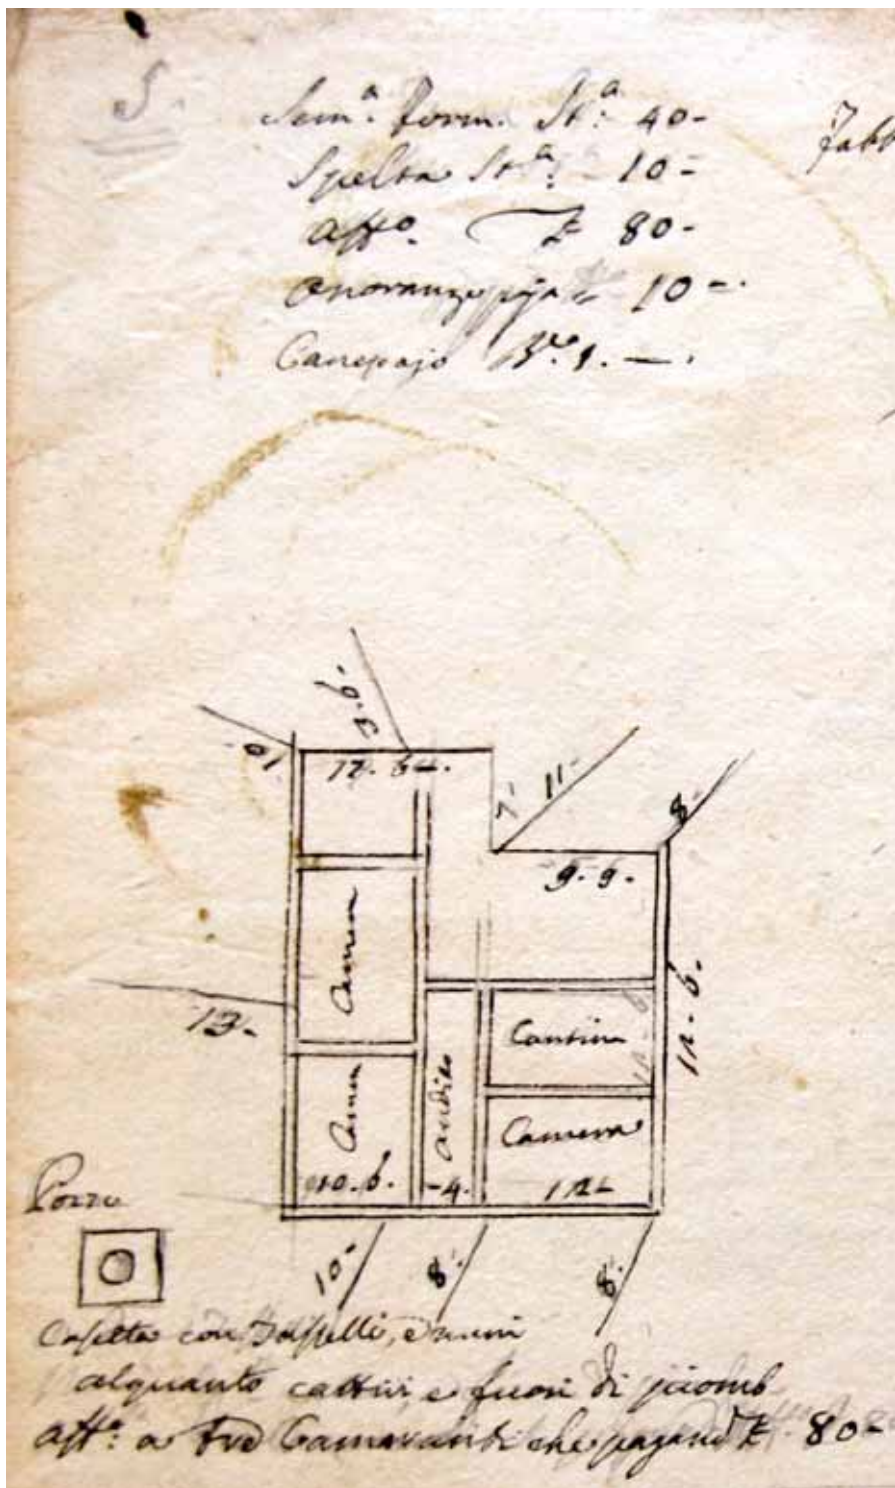 5.
Sem.ª Form. St.ª 40-
Spelta St.ª 10-
Aff.º £ 80-
onoranze 10-.
Canepajo 1.-.
Fabb
3.6.
10
12.6.
7.
11.
8.
9.9.
Camera
13.
12.6.
Cantina
12.6.
Camera
andito
Camera
10.6.
-4.
12-
Pozzo
10-
8.
8.
Casetta con Tasselli, e muri
alquanto cattivi, e fuori di piomb
aff.ª a tre Camaranti che pagano £ 80-